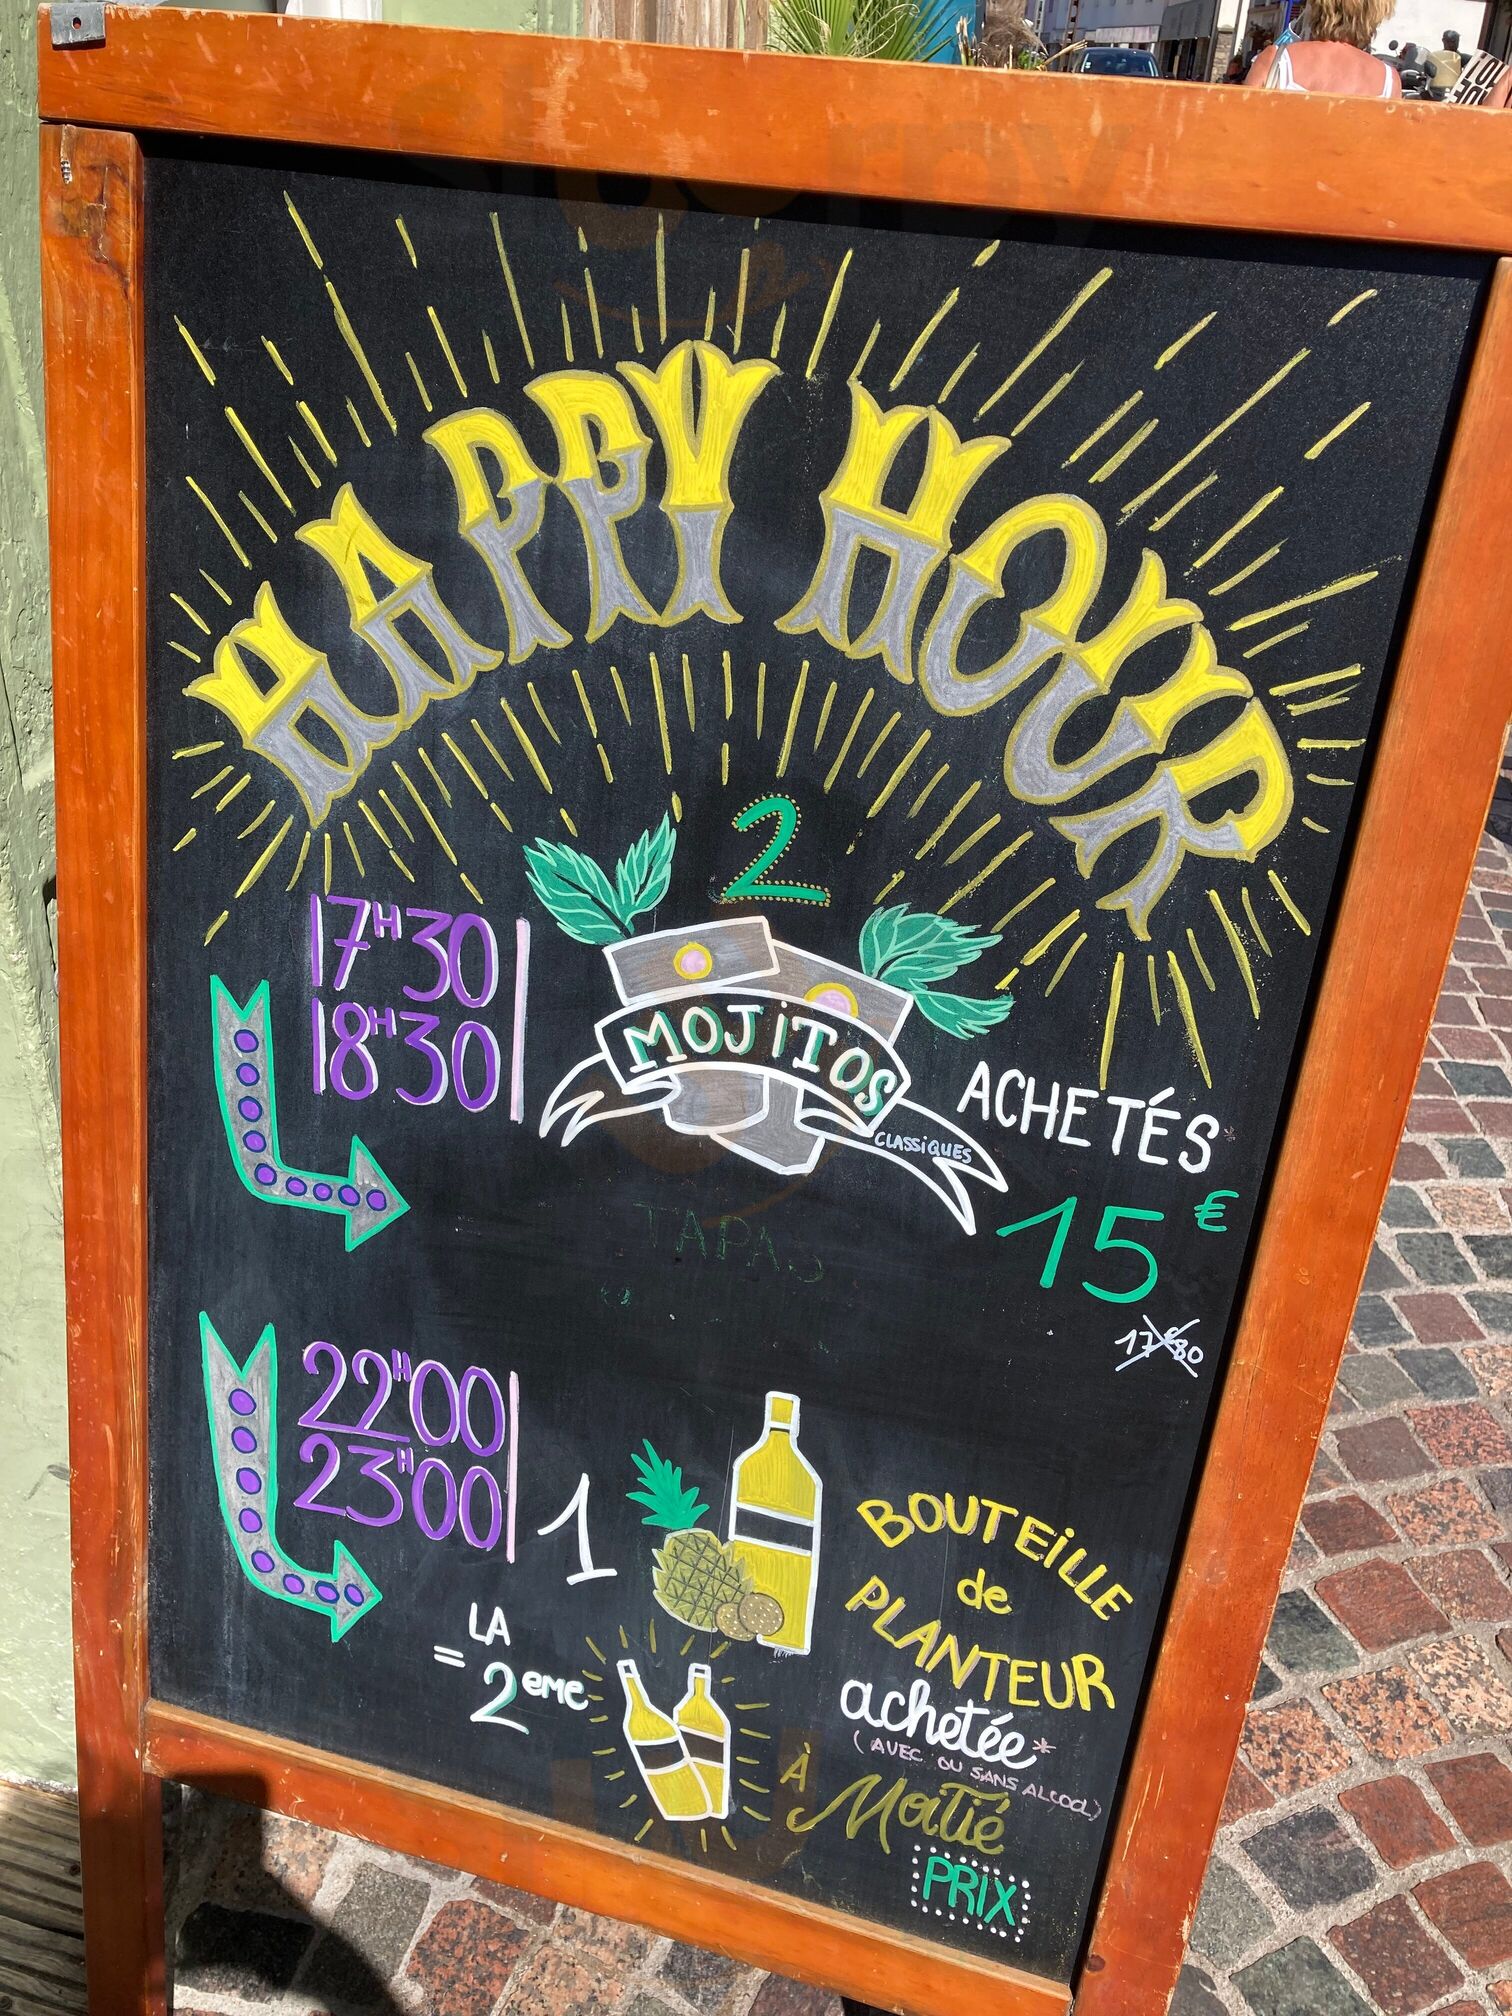 HAPPY HOUR
17H30
18H30
2
MOJITOS
CLASSIQUES
ACHETÉS*
15€
17€80
TAPAS
22H00
23H00
1
BOUTEILLE
de
PLANTEUR
achetée*
(AVEC OU SANS ALCOOL)
= LA
2eme
À Moitié
PRIX